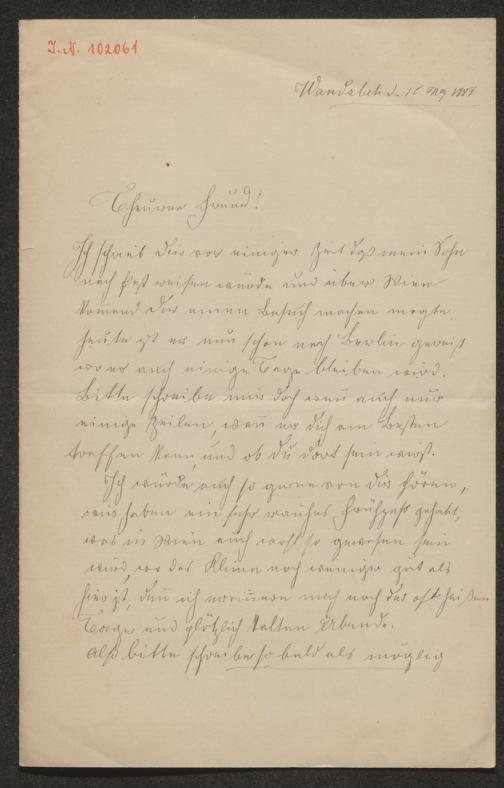 J.N. 102061
Wandsbek d. 15 Mg 1889
Theurer Freund!
Ich schrieb Dir vor einiger Zeit daß mein Sohn
nach Pest reisen würde und über Wien
kom̄end Dir einen Besuch machen mögte,
heute ist er nun schon nach Berlin gereist
wo er auch einige Tage bleiben wird.
Bitte schreibe mir doch wen̄ auch nur
einige Zeilen, wan̄ er Dich am Besten
treffen kann, und ob Du dort sein wirst.
Ich würde auch so gerne von Dir hören,
wir haben ein sehr rauhes Frühjahr gehabt,
was in Wien auch wohl so gewesen sein
wird, wo das Klima noch weniger gut als
hier ist, den̄ ich erin̄ere mich noch der oft heißen
Tage und plötzlich kalten Abende.
Also bitte schreibe so bald als möglig